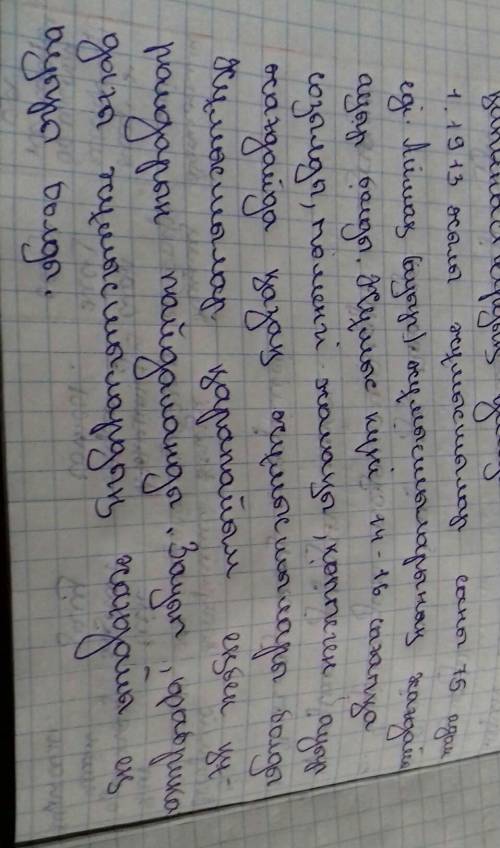 1. 1913 жылы жұмысшылар саны 75 адам
еді. Алшақ (ауыр) жұмысшыларының жағдайы
ауыр болды. Жұмыс күні 14-16 сағатқа
созылды, төменгі жалақы, көптеген ауыр
жағдайда қазақ жұмысшылары болды
Жұмысшылар қарапайым еңбек құ-
ралдарын пайдаланды. Зауыт, фабрика
дағы жұмысшылардың жағдайы ең
ауыра болды.